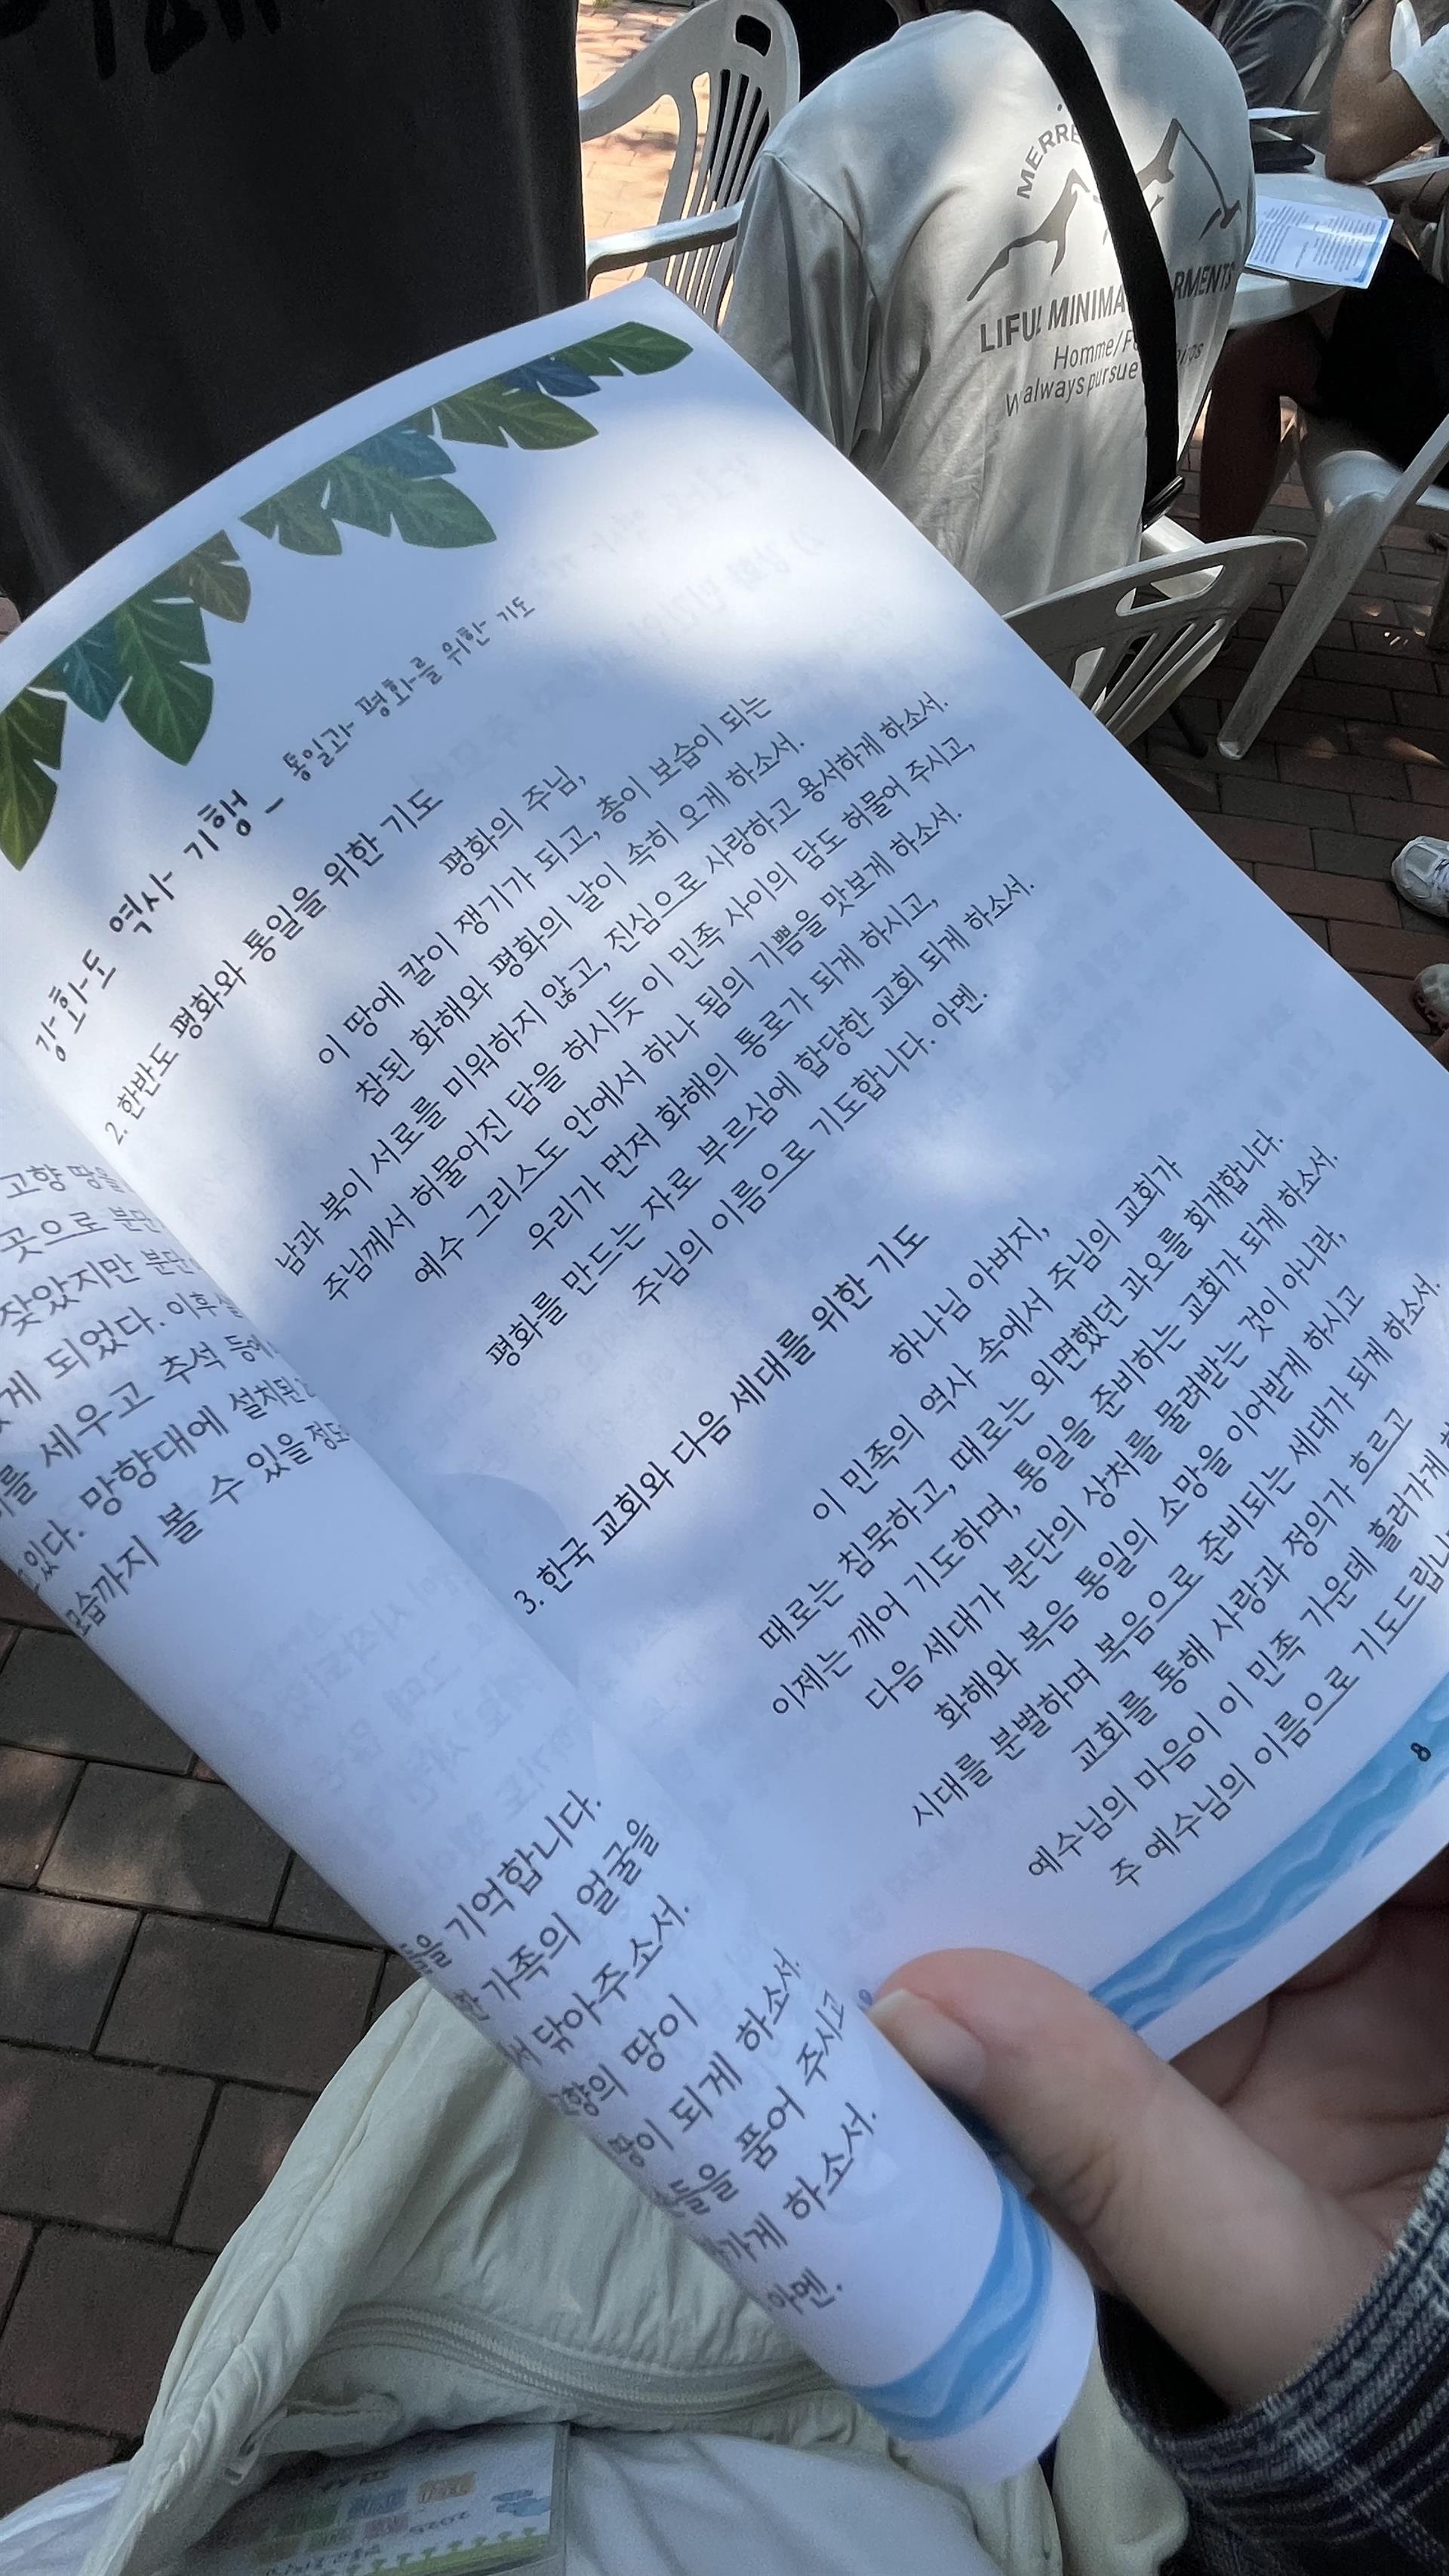 MERRE
LIFUL MINIMA RMENTS
Homme/F
W always pursue
강화도 역사 기행 – 통일과 평화를 위한 기도
2. 한반도 평화와 통일을 위한 기도
평화의 주님,
이 땅에 칼이 쟁기가 되고, 총이 보습이 되는
참된 화해와 평화의 날이 속히 오게 하소서.
남과 북이 서로를 미워하지 않고, 진심으로 사랑하고 용서하게 하소서.
주님께서 허물어진 담을 허시듯 이 민족 사이의 담도 허물어 주시고,
예수 그리스도 안에서 하나 됨의 기쁨을 맛보게 하소서.
우리가 먼저 화해의 통로가 되게 하시고,
평화를 만드는 자로 부르심에 합당한 교회 되게 하소서.
주님의 이름으로 기도합니다. 아멘.
3. 한국 교회와 다음 세대를 위한 기도
하나님 아버지,
이 민족의 역사 속에서 주님의 교회가
때로는 침묵하고, 때로는 외면했던 과오를 회개합니다.
이제는 깨어 기도하며, 통일을 준비하는 교회가 되게 하소서.
다음 세대가 분단의 상처를 물려받는 것이 아니라,
화해와 복음 통일의 소망을 이어받게 하시고
시대를 분별하며 복음으로 준비되는 세대가 되게 하소서.
교회를 통해 사랑과 정의가 흐르고
예수님의 마음이 이 민족 가운데 흘러가게
주 예수님의 이름으로 기도드립니
8
고향 땅을
곳으로 분단
잦았지만 분단
게 되었다. 이후
를 세우고 추석 등에
있다. 망향대에 설치된
모습까지 볼 수 있을 정도
을 기억합니다.
가족의 얼굴을
서 닦아주소서.
고향의 땅이
땅이 되게 하소서.
들을 품어 주시고
가게 하소서.
아멘.